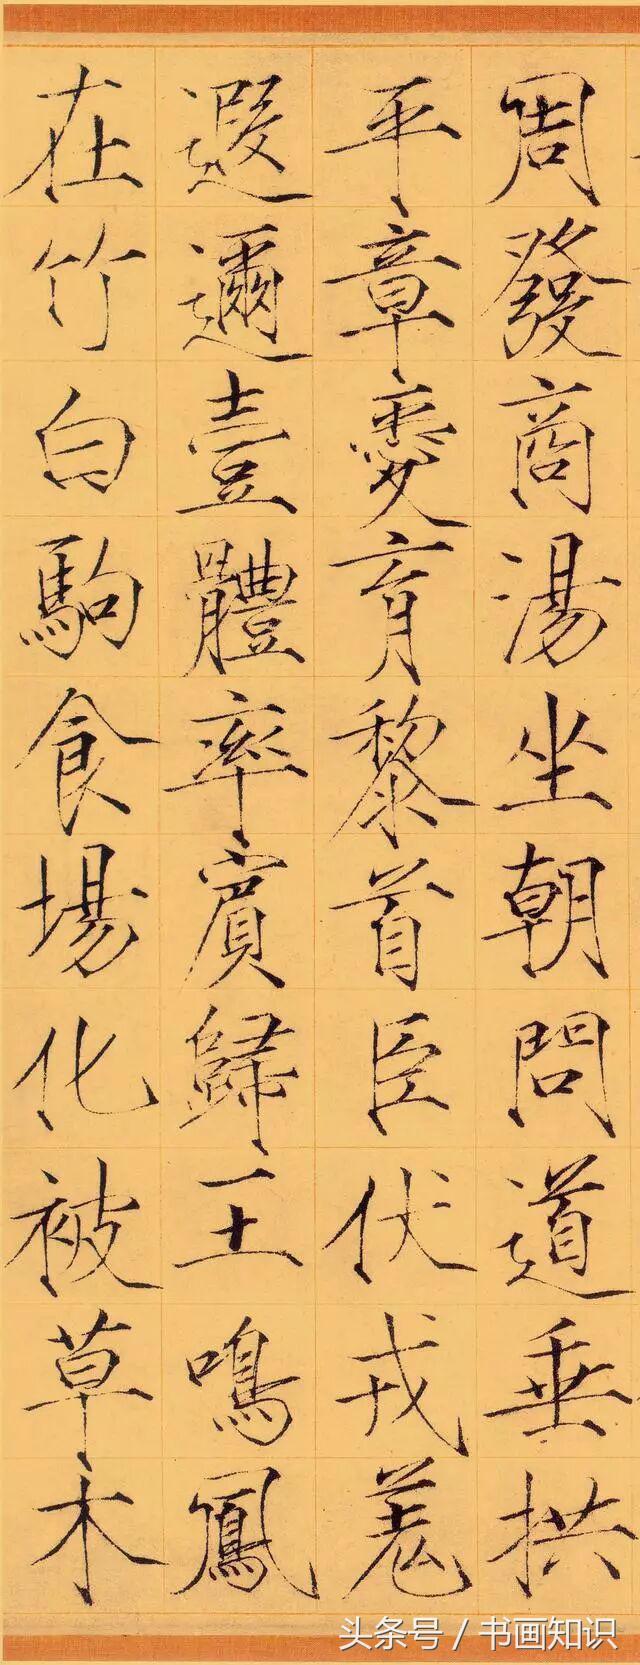 周發商湯坐朝問道垂拱
平章愛育黎首臣伏戎羌
遐邇壹體率賓歸王鳴鳳
在竹白駒食場化被草木
头条号 / 书画知识